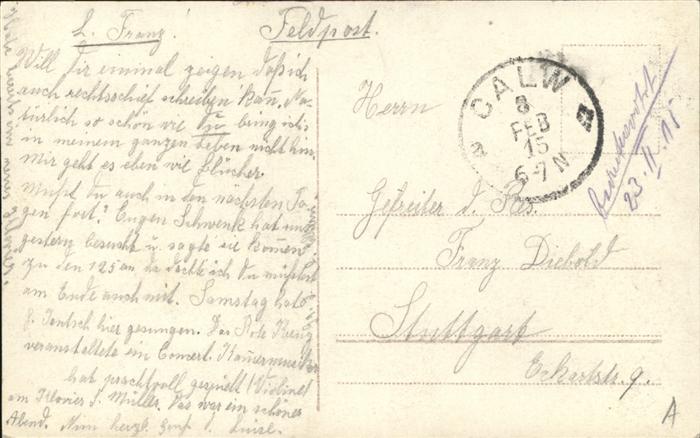 L. Franz! Feldpost.
Will Dir einmal zeigen daß ich
auch rechtsschief schreiben kan. Na-
türlich so schön wie Du bring ich's
in meinem ganzen Leben nicht hin.
Mir geht es eben wie Blücher.
Mußt Du auch in den nächsten Ta-
gen fort? Eugen Schwenk hat uns
gestern besucht u. sagte sie kommen
zu den 125 an da dachte ich Du müßtest
am Ende auch mit. Samstag hat
hier gesungen. Das Rote Kreuz
veranstaltete ein Concert.
hat prachtvoll gespielt (Violine)
am Klavier S. Müller. Das war ein schöner
Abend. Nun herzl. Gruß
CALW
8
FEB
15
6-7 N
Herrn
Gefreiter d. Res.
Franz Diebold
Stuttgart
Eckartstr. 9.
23. II. 15
A